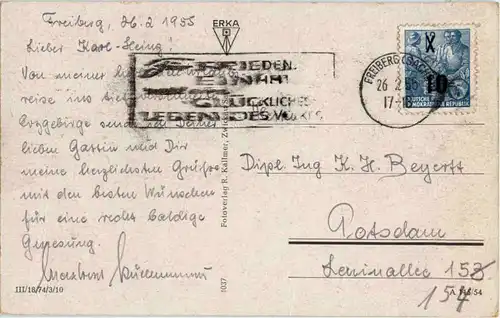 Freiberg, 26.2 1955
Lieber Karl-Heinz!
Von meiner
reise ins
Erzgebirge
lieben Gattin und Dir
meine herzlichsten Grüße
mit den besten Wünschen
für eine recht baldige
Genesung.
III/18/74/3/10
ERKA
FRIEDEN
GLÜCKLICHES
LEBEN DES VOLKES
Fotoverlag R. Kallmer, Zwickau
1037
FREIBERG (SACHS)
26.2.55
17-
X
10
DEUTSCHE
DEMOKRATISCHE REPUBLIK
Dipl. Ing K. H. Beyertt
Potsdam
Leninallee 153
154